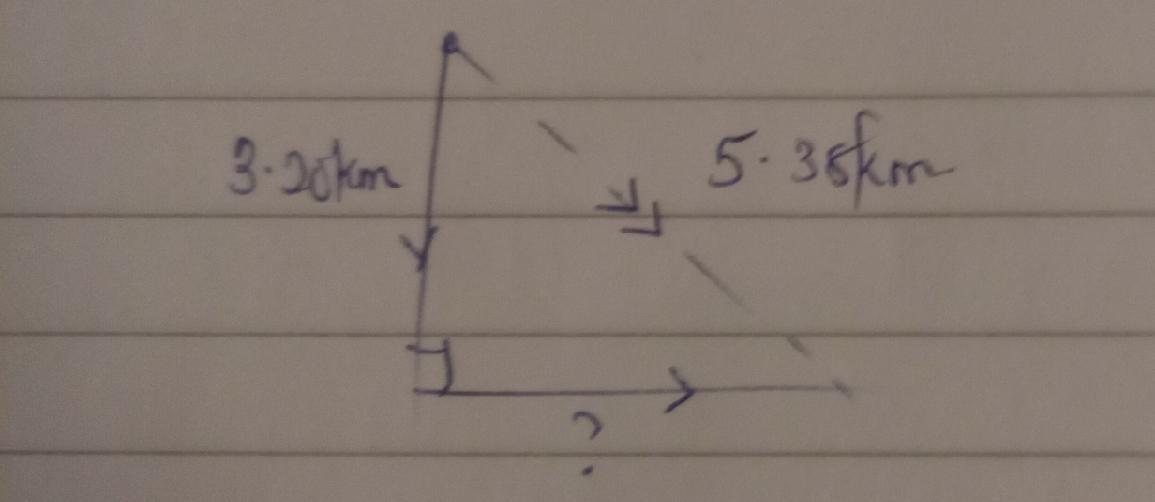 3.20km
5.35km
?